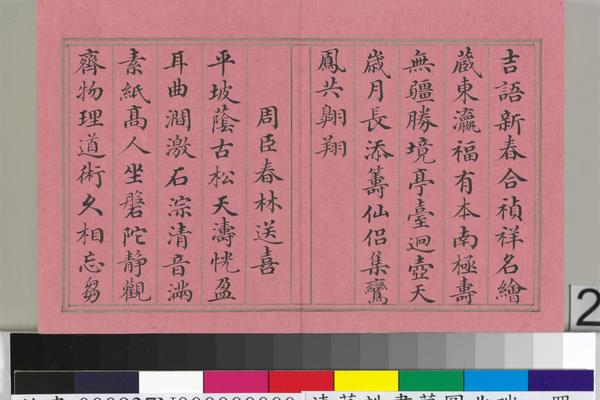 吉語新春合禎祥名繪
蔵東瀛福有本南極壽
無疆勝境亭臺迥壺天
歲月長添籌仙侣集鸞
鳳共翺翔
周臣春林送喜
平坡蔭古松天濤恍盈
耳曲澗激石淙清音滿
素紙髙人坐磐陀静觀
齊物理道術久相忘芻
2